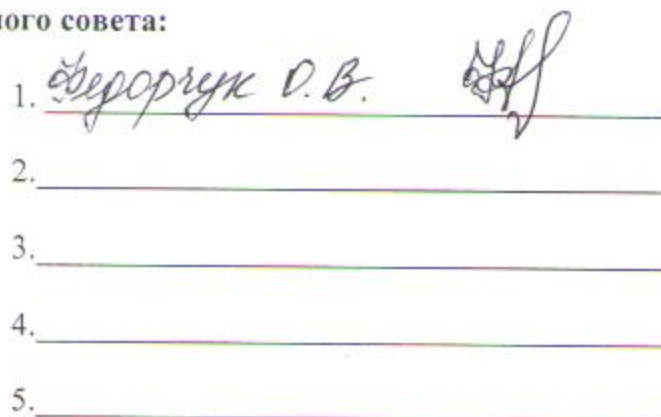 ного совета:
1. Федорчук О. В.
2.
3.
4.
5.